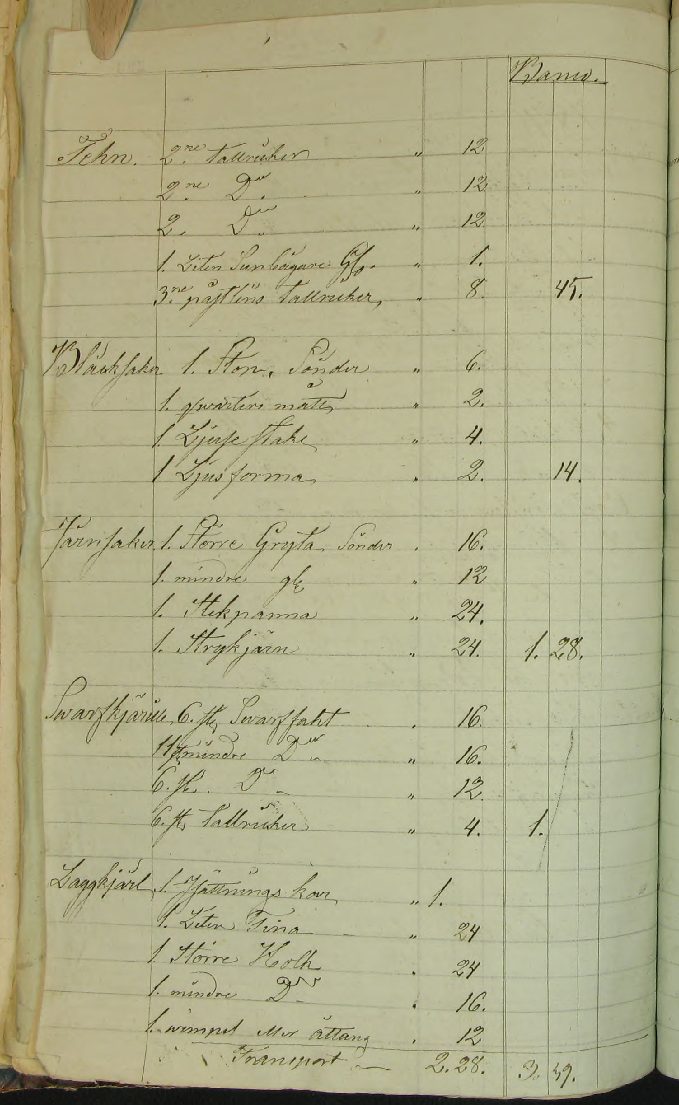 Banco.
Tehn. 2ne Tallrickar " 12
2ne Do " 12
2. Do " 12
1. Liten " 1.
3ne Tallricker " 8. 45.
Bläcksaker 1. Sönder " 6.
1. qwarters mått " 2.
1. Ljusestake " 4.
1 Ljusforma " 2. 14.
Järnsaker. 1. Större Gryta Sönder " 16.
1. mindre " 12
1. Stekpanna " 24.
1. Strykjärn " 24. 1. 28.
Swarfkjärill 6. st. Swarffaht " 16
11 st mindre Do " 16.
6. st. Do " 12.
6. st. Tallricker " 4. 1.
Laggkjäril 1. Jäsnings kar " 1.
1. Liten Tina " 24
1 Större Holk " 24
1. mindre Do " 16.
1. eller åttang " 12
Transport 2. 28. 3. 39.